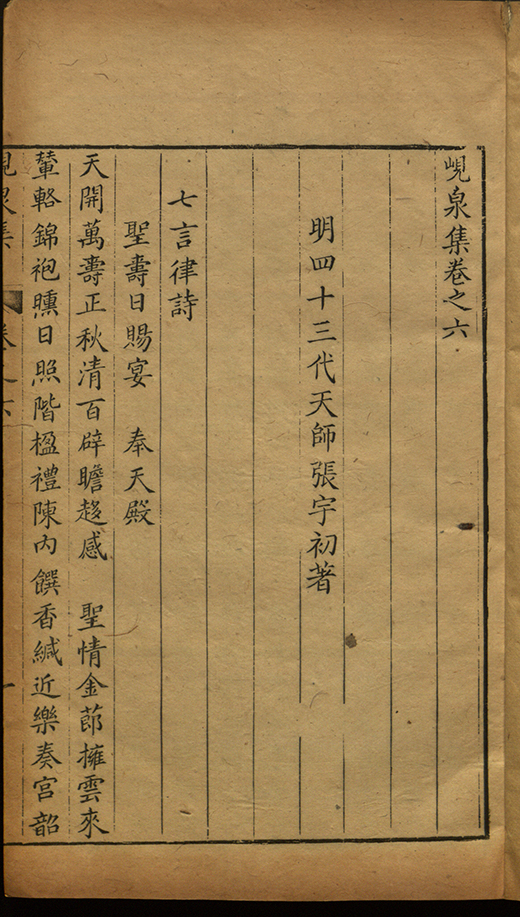 峴泉集卷之六
明四十三代天師張宇初著
七言律詩
聖壽日賜宴　奉天殿
天開萬壽正秋清百辟瞻趍感　聖情金莭擁雲來
輦輅錦袍曛日照階楹禮陳内饌香緘近樂奏宮韶
峴泉集　卷之六　一